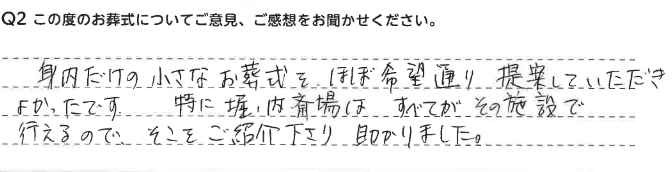 Q2 この度のお葬式についてご意見、ご感想をお聞かせください。
身内だけの小さなお葬式を、ほぼ希望通り提案していただき
よかったです 特に堀ノ内斎場は すべてがその施設で
行えるので、そこをご紹介下さり 助かりました。